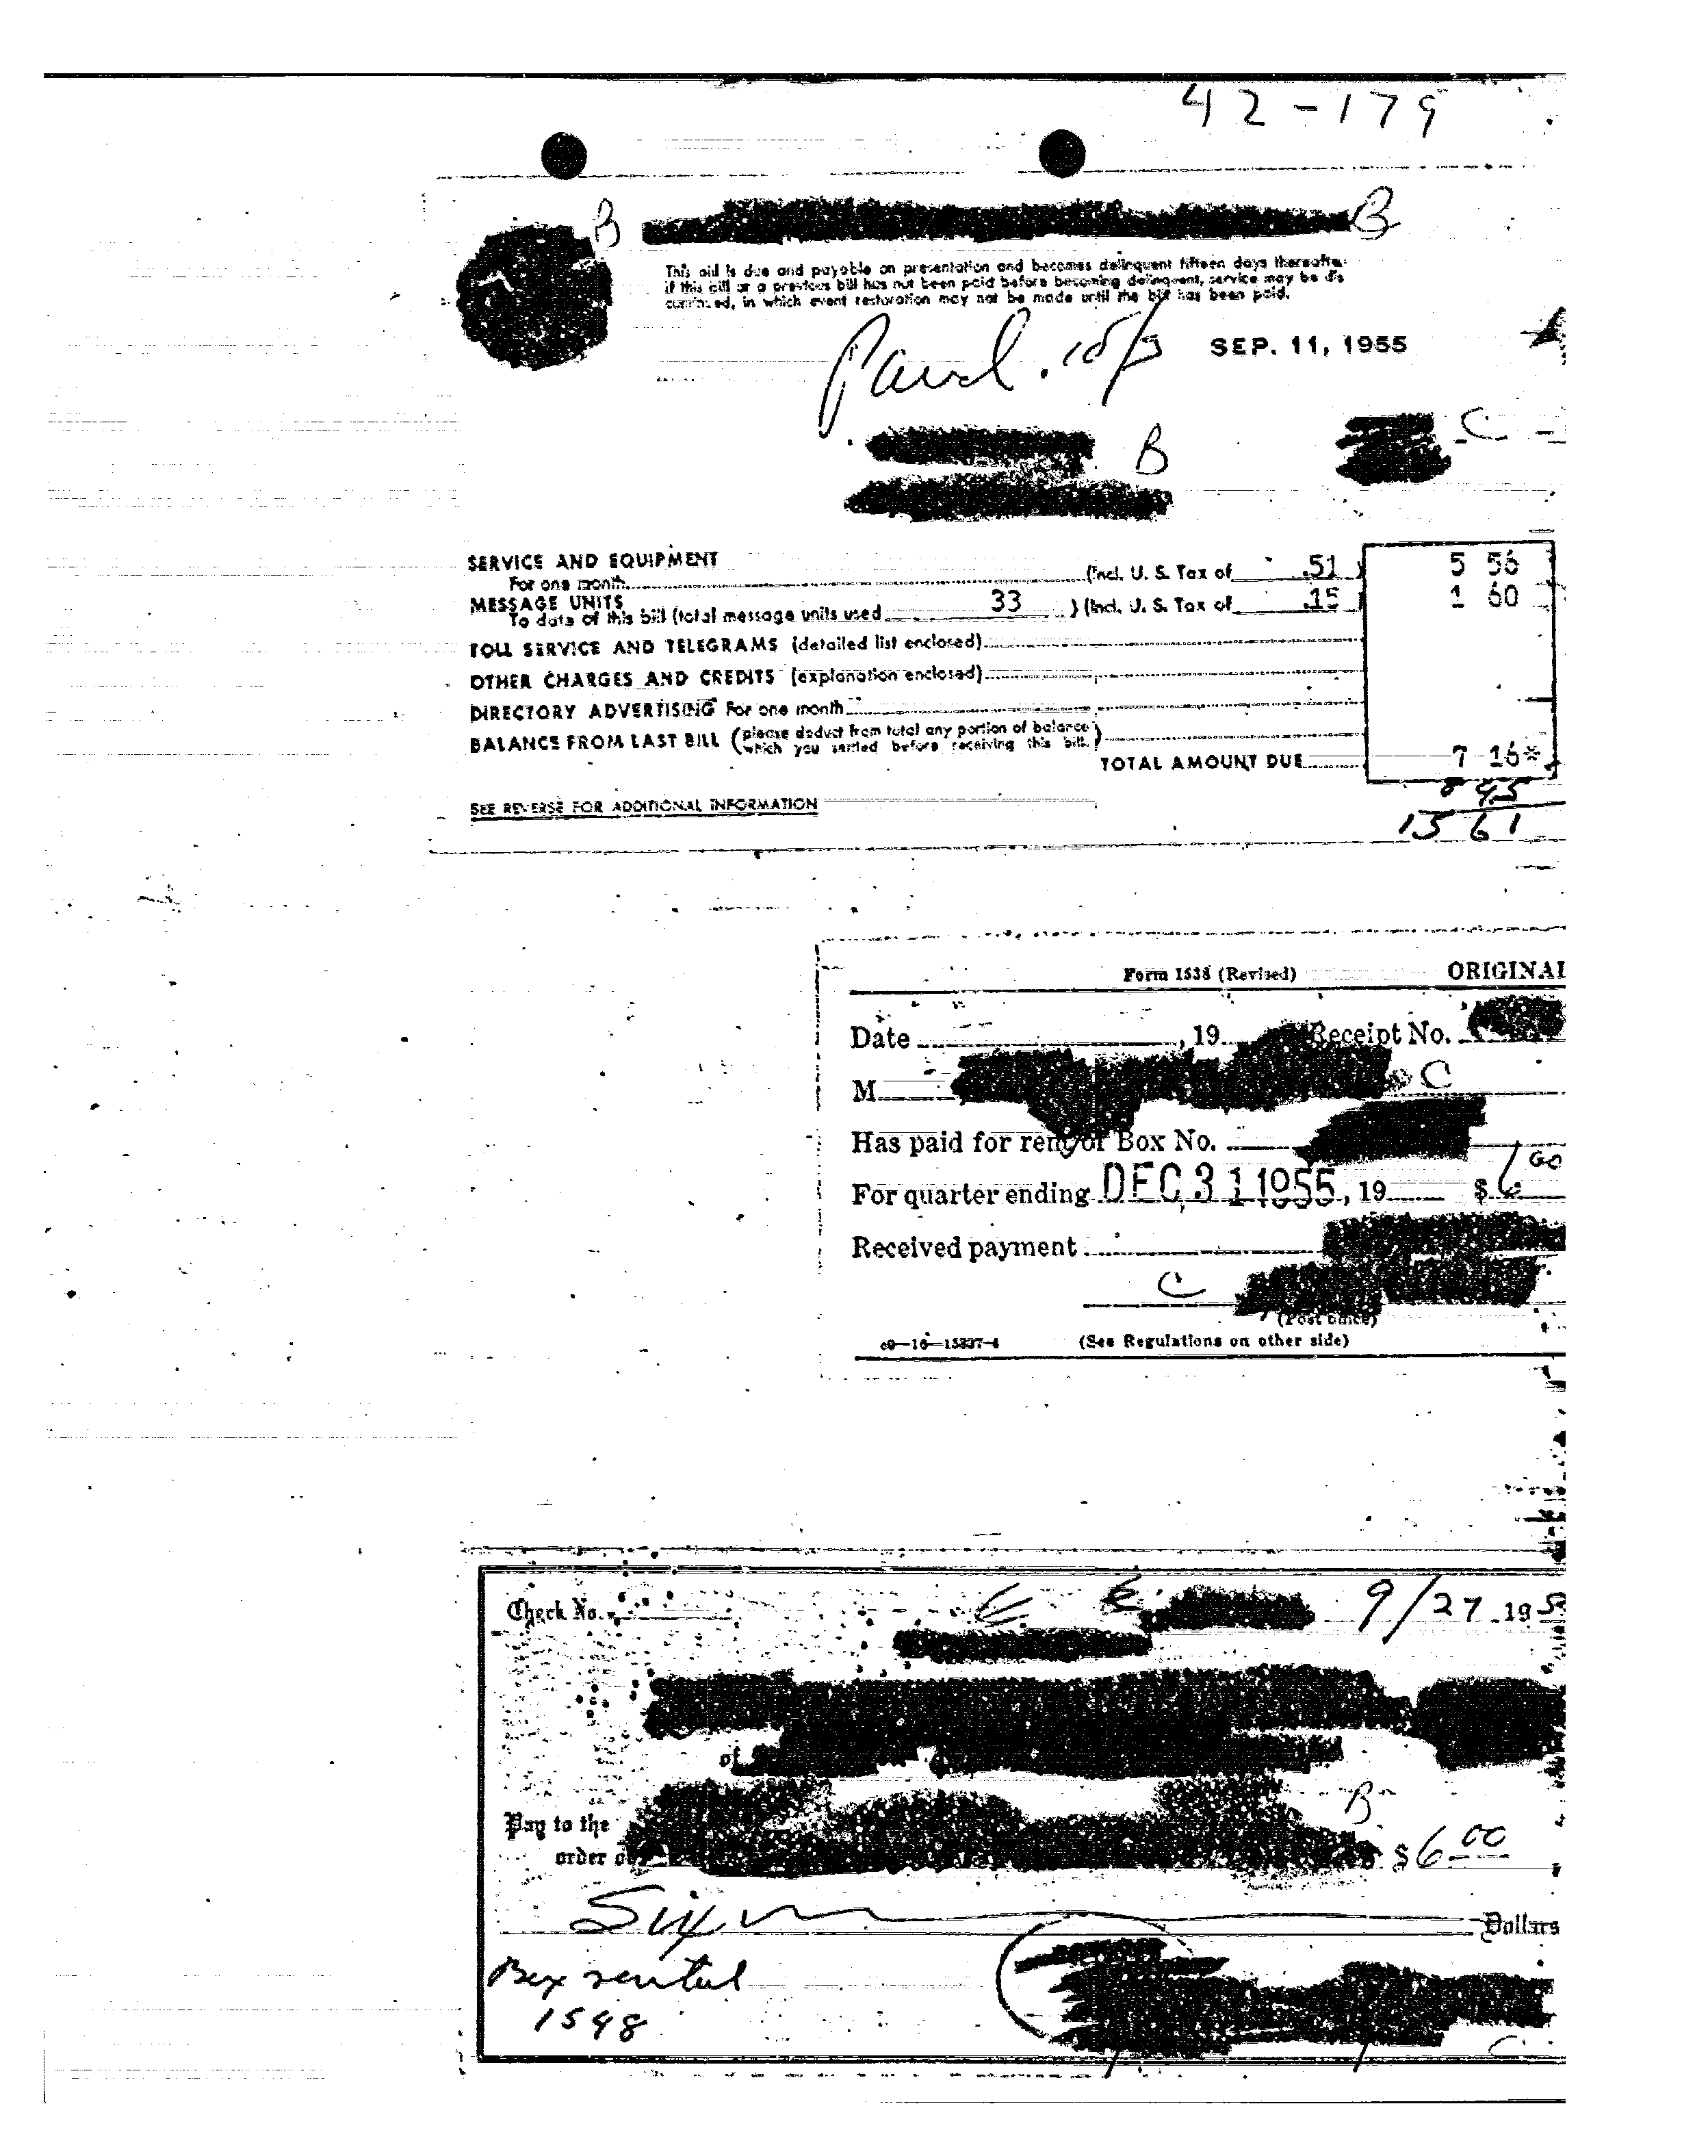 42-179
B B
This bill is due and payable on presentation and becomes delinquent fifteen days thereafter.
if this bill or a previous bill has not been paid before becoming delinquent, service may be dis
continued, in which event restoration may not be made until the bill has been paid.
SEP. 11, 1955
C
B
SERVICE AND EQUIPMENT
For one month (Incl. U. S. Tax of .51 ) 5 56
MESSAGE UNITS
To date of this bill (total message units used 33 ) (Incl. U. S. Tax of .15 ) 1 60
TOLL SERVICE AND TELEGRAMS (detailed list enclosed)
OTHER CHARGES AND CREDITS (explanation enclosed)
DIRECTORY ADVERTISING For one month
BALANCE FROM LAST BILL (please deduct from total any portion of balance
which you settled before receiving this bill.)
TOTAL AMOUNT DUE 7 16*
8 45
15 61
SEE REVERSE FOR ADDITIONAL INFORMATION
Form 1538 (Revised) ORIGINAL
Date , 19 Receipt No.
M C
Has paid for rent of Box No.
For quarter ending DEC 31 1955, 19 $ 6 00
Received payment
C
(Post office)
c9—16—15837-4 (See Regulations on other side)
Check No. 9/27 195
of
B
Pay to the
order of $ 6 00
Six Dollars
Box rental
1598
C